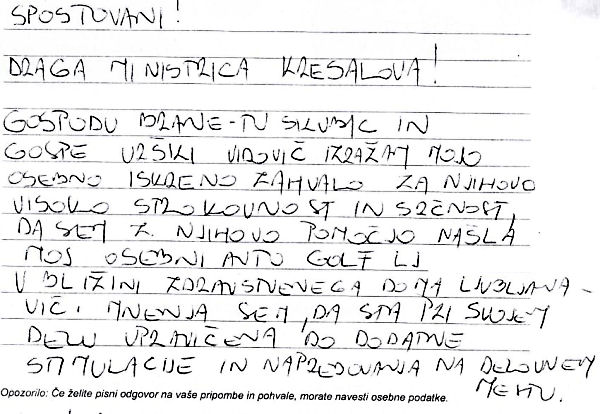 SPOSTOVANI!
DRAGA MINISTRICA KRESALOVA!
GOSPODU BRANE-TU SKUBIC IN
GOSPE URŠKI VIROVIČ IZRAŽAM MOJO
OSEBNO ISKRENO ZAHVALO ZA NJIHOVO
VISOKO STROKOVNOST IN SRČNOST,
DA SEM Z NJIHOVO POMOČJO NAŠLA
MOJ OSEBNI AVTO GOLF LJ
V BLIŽINI ZDRAVSTVENEGA DOMA LJUBLJANA -
VIČ. MNENJA SEM, DA STA PRI SVOJEM
DELU UPRAVIČENA DO DODATNE
STIMULACIJE IN NAPREDOVANJA NA DELOVNEM
MESTU.
Opozorilo: Če želite pisni odgovor na vaše pripombe in pohvale, morate navesti osebne podatke.